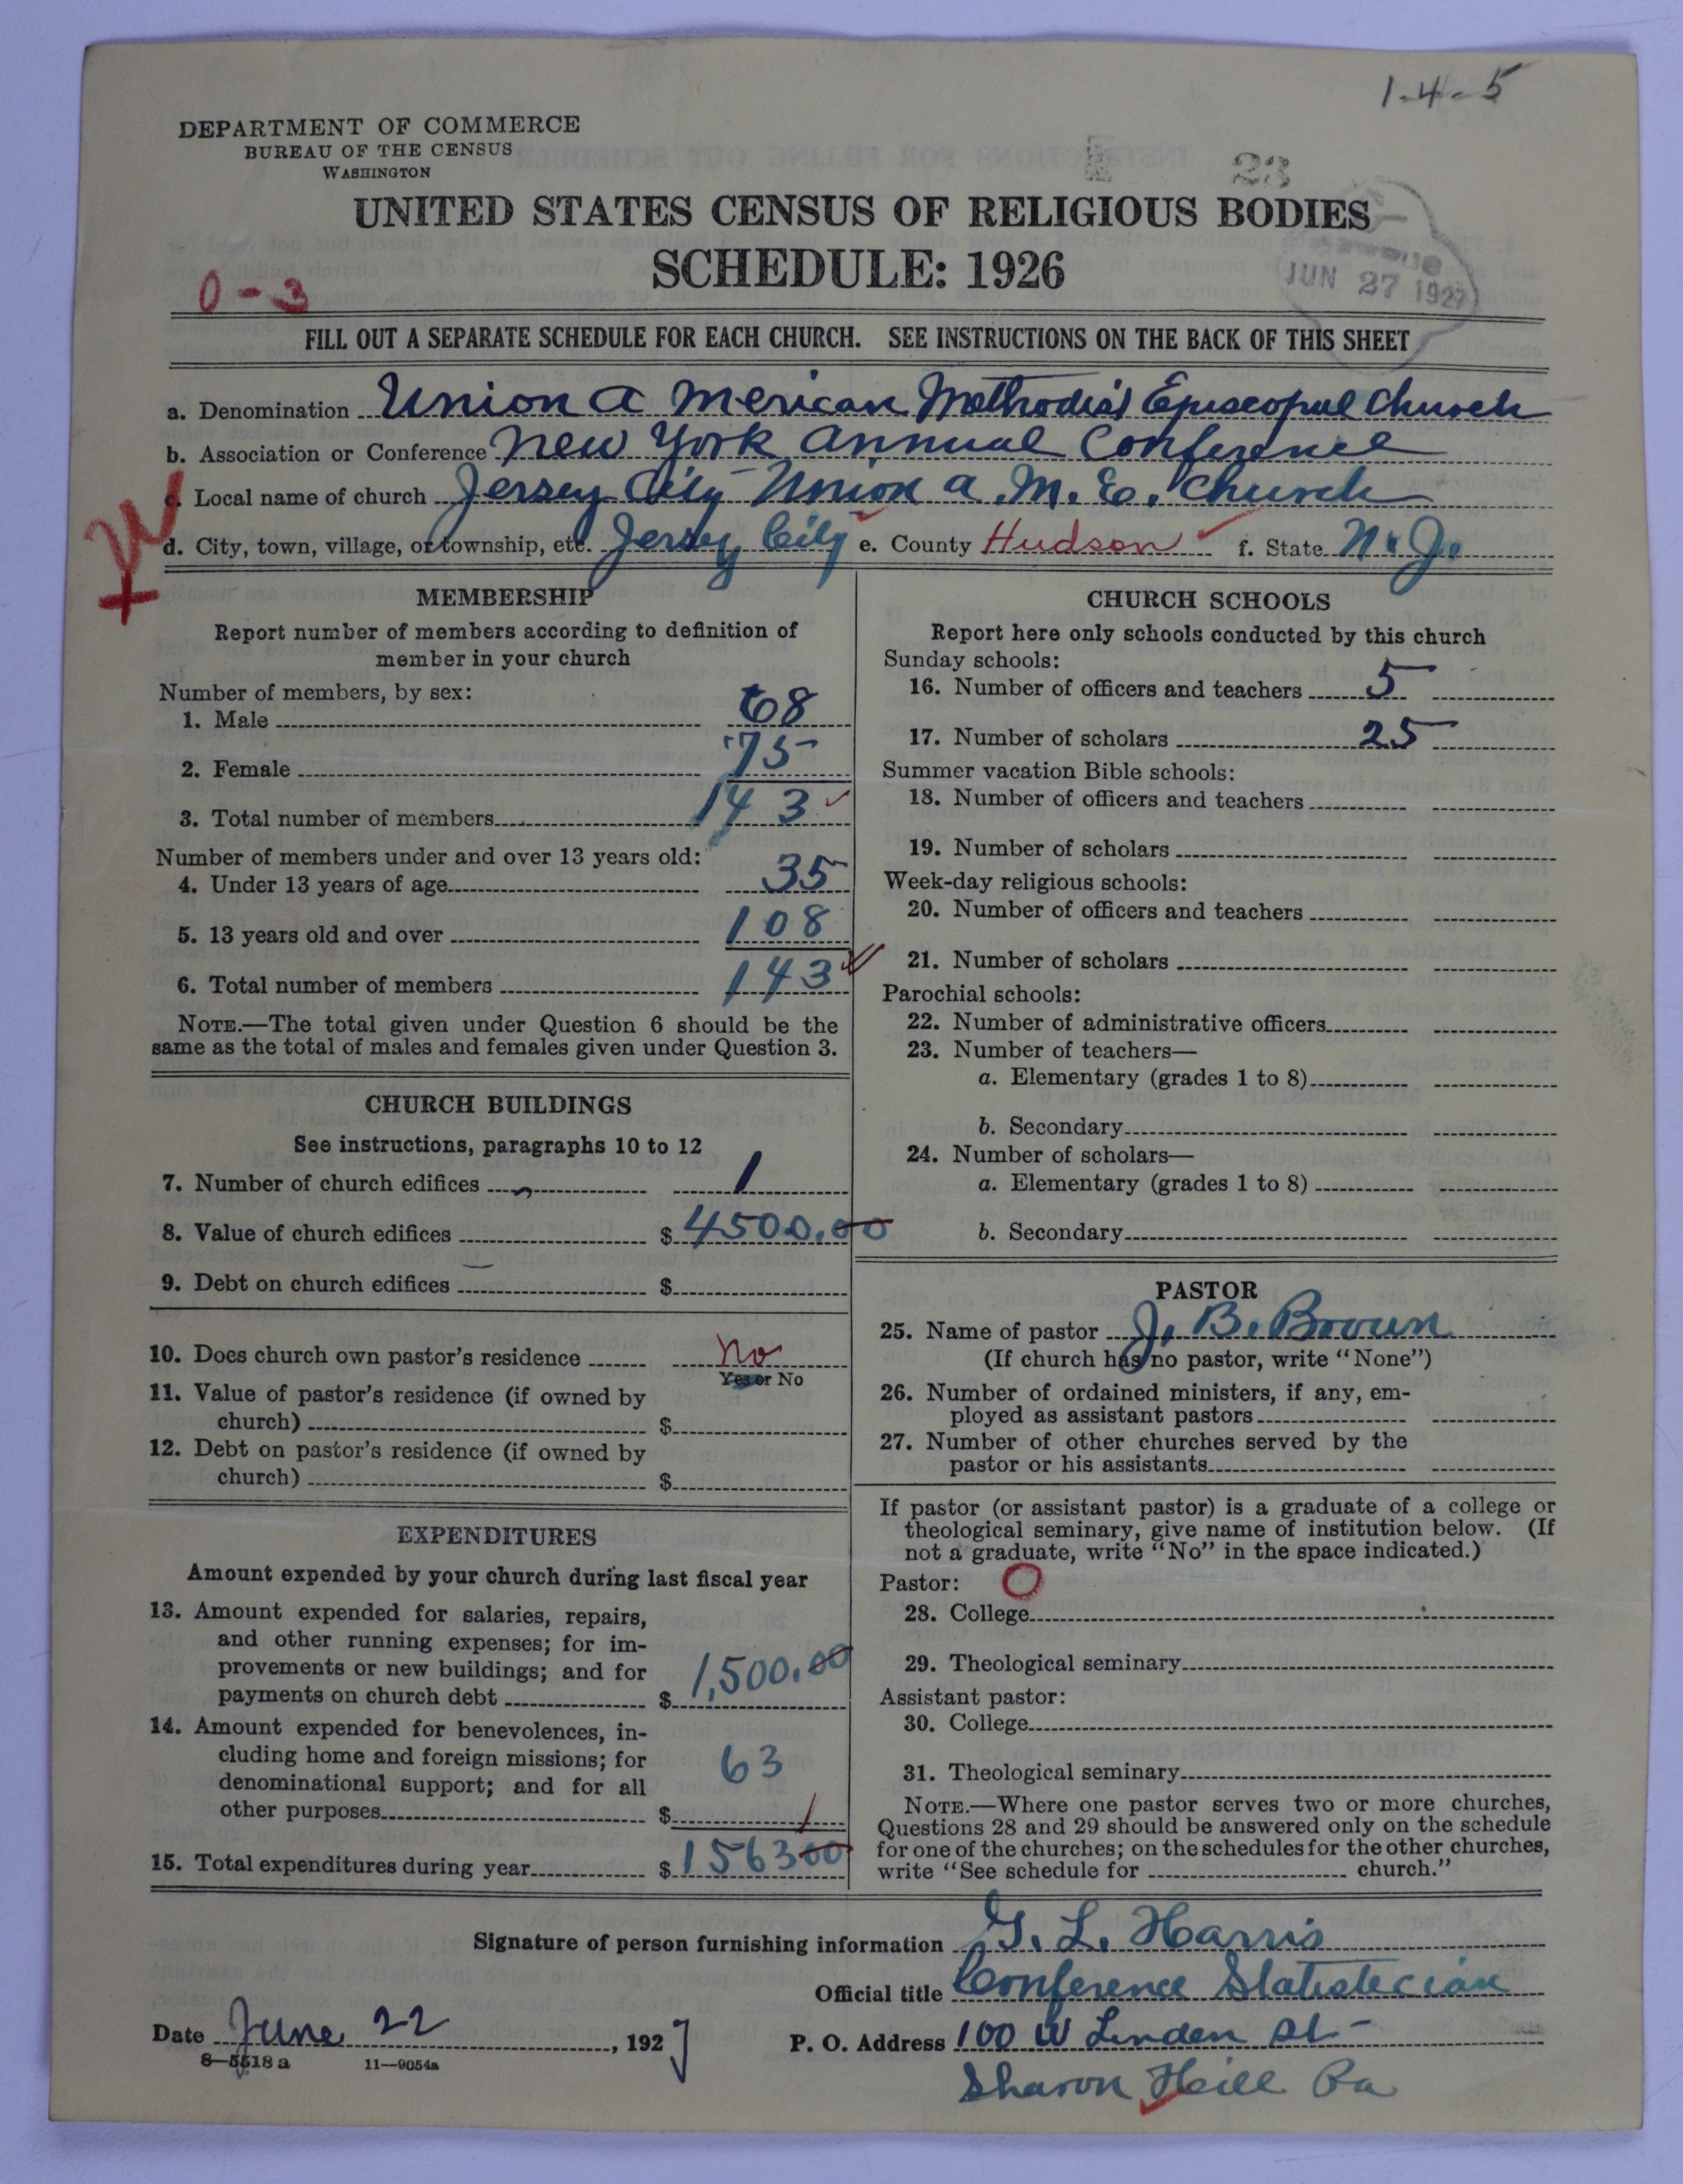 1-4-5
DEPARTMENT OF COMMERCE
BUREAU OF THE CENSUS
WASHINGTON
23
UNITED STATES CENSUS OF RELIGIOUS BODIES
SCHEDULE: 1926
JUN 27 1927
0-3
FILL OUT A SEPARATE SCHEDULE FOR EACH CHURCH. SEE INSTRUCTIONS ON THE BACK OF THIS SHEET
a. Denomination Union American Methodist Episcopal Church
b. Association or Conference New York Annual Conference
c. Local name of church Jersey City Union A. M. E. Church
d. City, town, village, or township, etc. Jersey City e. County Hudson f. State N. J.
MEMBERSHIP
Report number of members according to definition of
member in your church
Number of members, by sex:
1. Male 68
2. Female 75
3. Total number of members 143
Number of members under and over 13 years old:
4. Under 13 years of age 35
5. 13 years old and over 108
6. Total number of members 143
NOTE.—The total given under Question 6 should be the
same as the total of males and females given under Question 3.
CHURCH BUILDINGS
See instructions, paragraphs 10 to 12
7. Number of church edifices 1
8. Value of church edifices $4500.00
9. Debt on church edifices $
10. Does church own pastor's residence No
Yes or No
11. Value of pastor's residence (if owned by
church) $
12. Debt on pastor's residence (if owned by
church) $
EXPENDITURES
Amount expended by your church during last fiscal year
13. Amount expended for salaries, repairs,
and other running expenses; for im-
provements or new buildings; and for
payments on church debt $1,500.00
14. Amount expended for benevolences, in-
cluding home and foreign missions; for
denominational support; and for all
other purposes $ 63
15. Total expenditures during year $156300
CHURCH SCHOOLS
Report here only schools conducted by this church
Sunday schools:
16. Number of officers and teachers 5
17. Number of scholars 25
Summer vacation Bible schools:
18. Number of officers and teachers
19. Number of scholars
Week-day religious schools:
20. Number of officers and teachers
21. Number of scholars
Parochial schools:
22. Number of administrative officers
23. Number of teachers—
a. Elementary (grades 1 to 8)
b. Secondary
24. Number of scholars—
a. Elementary (grades 1 to 8)
b. Secondary
PASTOR
25. Name of pastor J. B. Brown
(If church has no pastor, write "None")
26. Number of ordained ministers, if any, em-
ployed as assistant pastors
27. Number of other churches served by the
pastor or his assistants
If pastor (or assistant pastor) is a graduate of a college or
theological seminary, give name of institution below. (If
not a graduate, write "No" in the space indicated.)
Pastor: O
28. College
29. Theological seminary
Assistant pastor:
30. College
31. Theological seminary
NOTE.—Where one pastor serves two or more churches,
Questions 28 and 29 should be answered only on the schedule
for one of the churches; on the schedules for the other churches,
write "See schedule for church."
Signature of person furnishing information G. L. Harris
Official title Conference Statistecian
Date June 22, 1927 P. O. Address 100 W Linden St
8—5518 a 11—9054a
Sharon Hill Pa